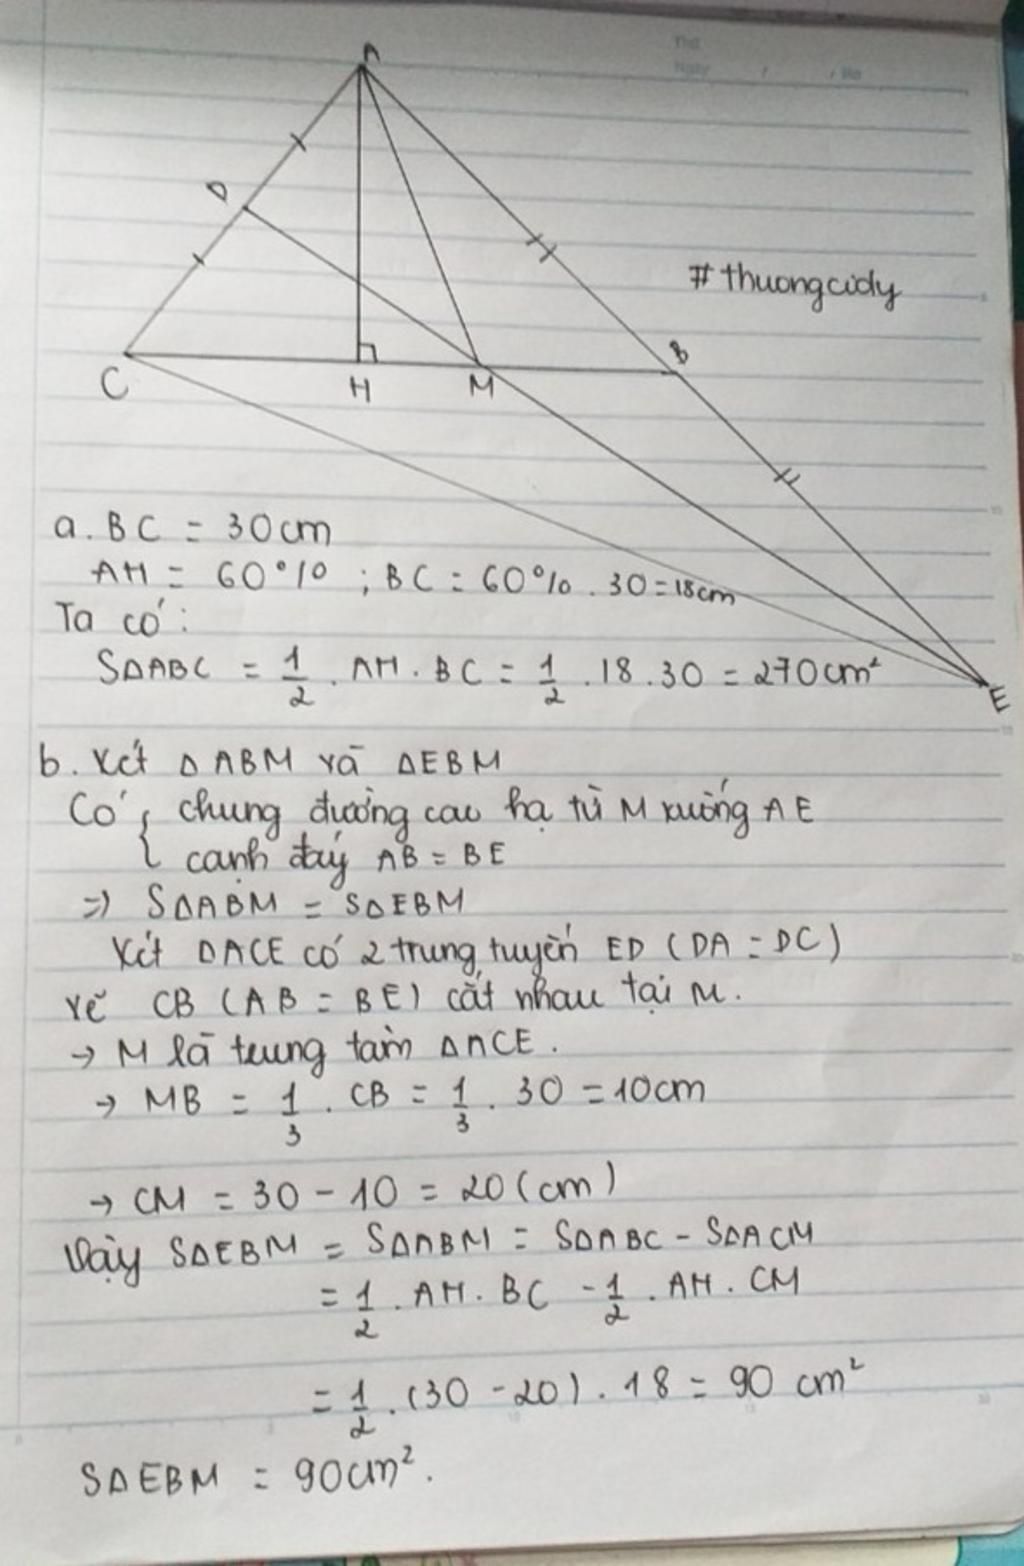 Thứ
Ngày / / No
A
D
#thuongcidy
B
C
H
M
E
a. BC = 30cm
AH = 60% ; BC = 60% . 30 = 18cm
Ta có:
SΔABC = 1/2 . AH . BC = 1/2 . 18 . 30 = 270cm²
b. Xét ΔABM và ΔEBM
Có { chung đường cao hạ từ M xuống AE
cạnh đáy AB = BE
=> SΔABM = SΔEBM
Xét ΔACE có 2 trung tuyến ED (DA = DC)
và CB (AB = BE) cắt nhau tại M.
→ M là trung tâm ΔACE.
→ MB = 1/3 . CB = 1/3 . 30 = 10cm
→ CM = 30 - 10 = 20 (cm)
Vậy SΔEBM = SΔABM = SΔABC - SΔACM
= 1/2 . AH . BC - 1/2 . AH . CM
= 1/2 . (30 - 20) . 18 = 90 cm²
SΔEBM = 90cm².